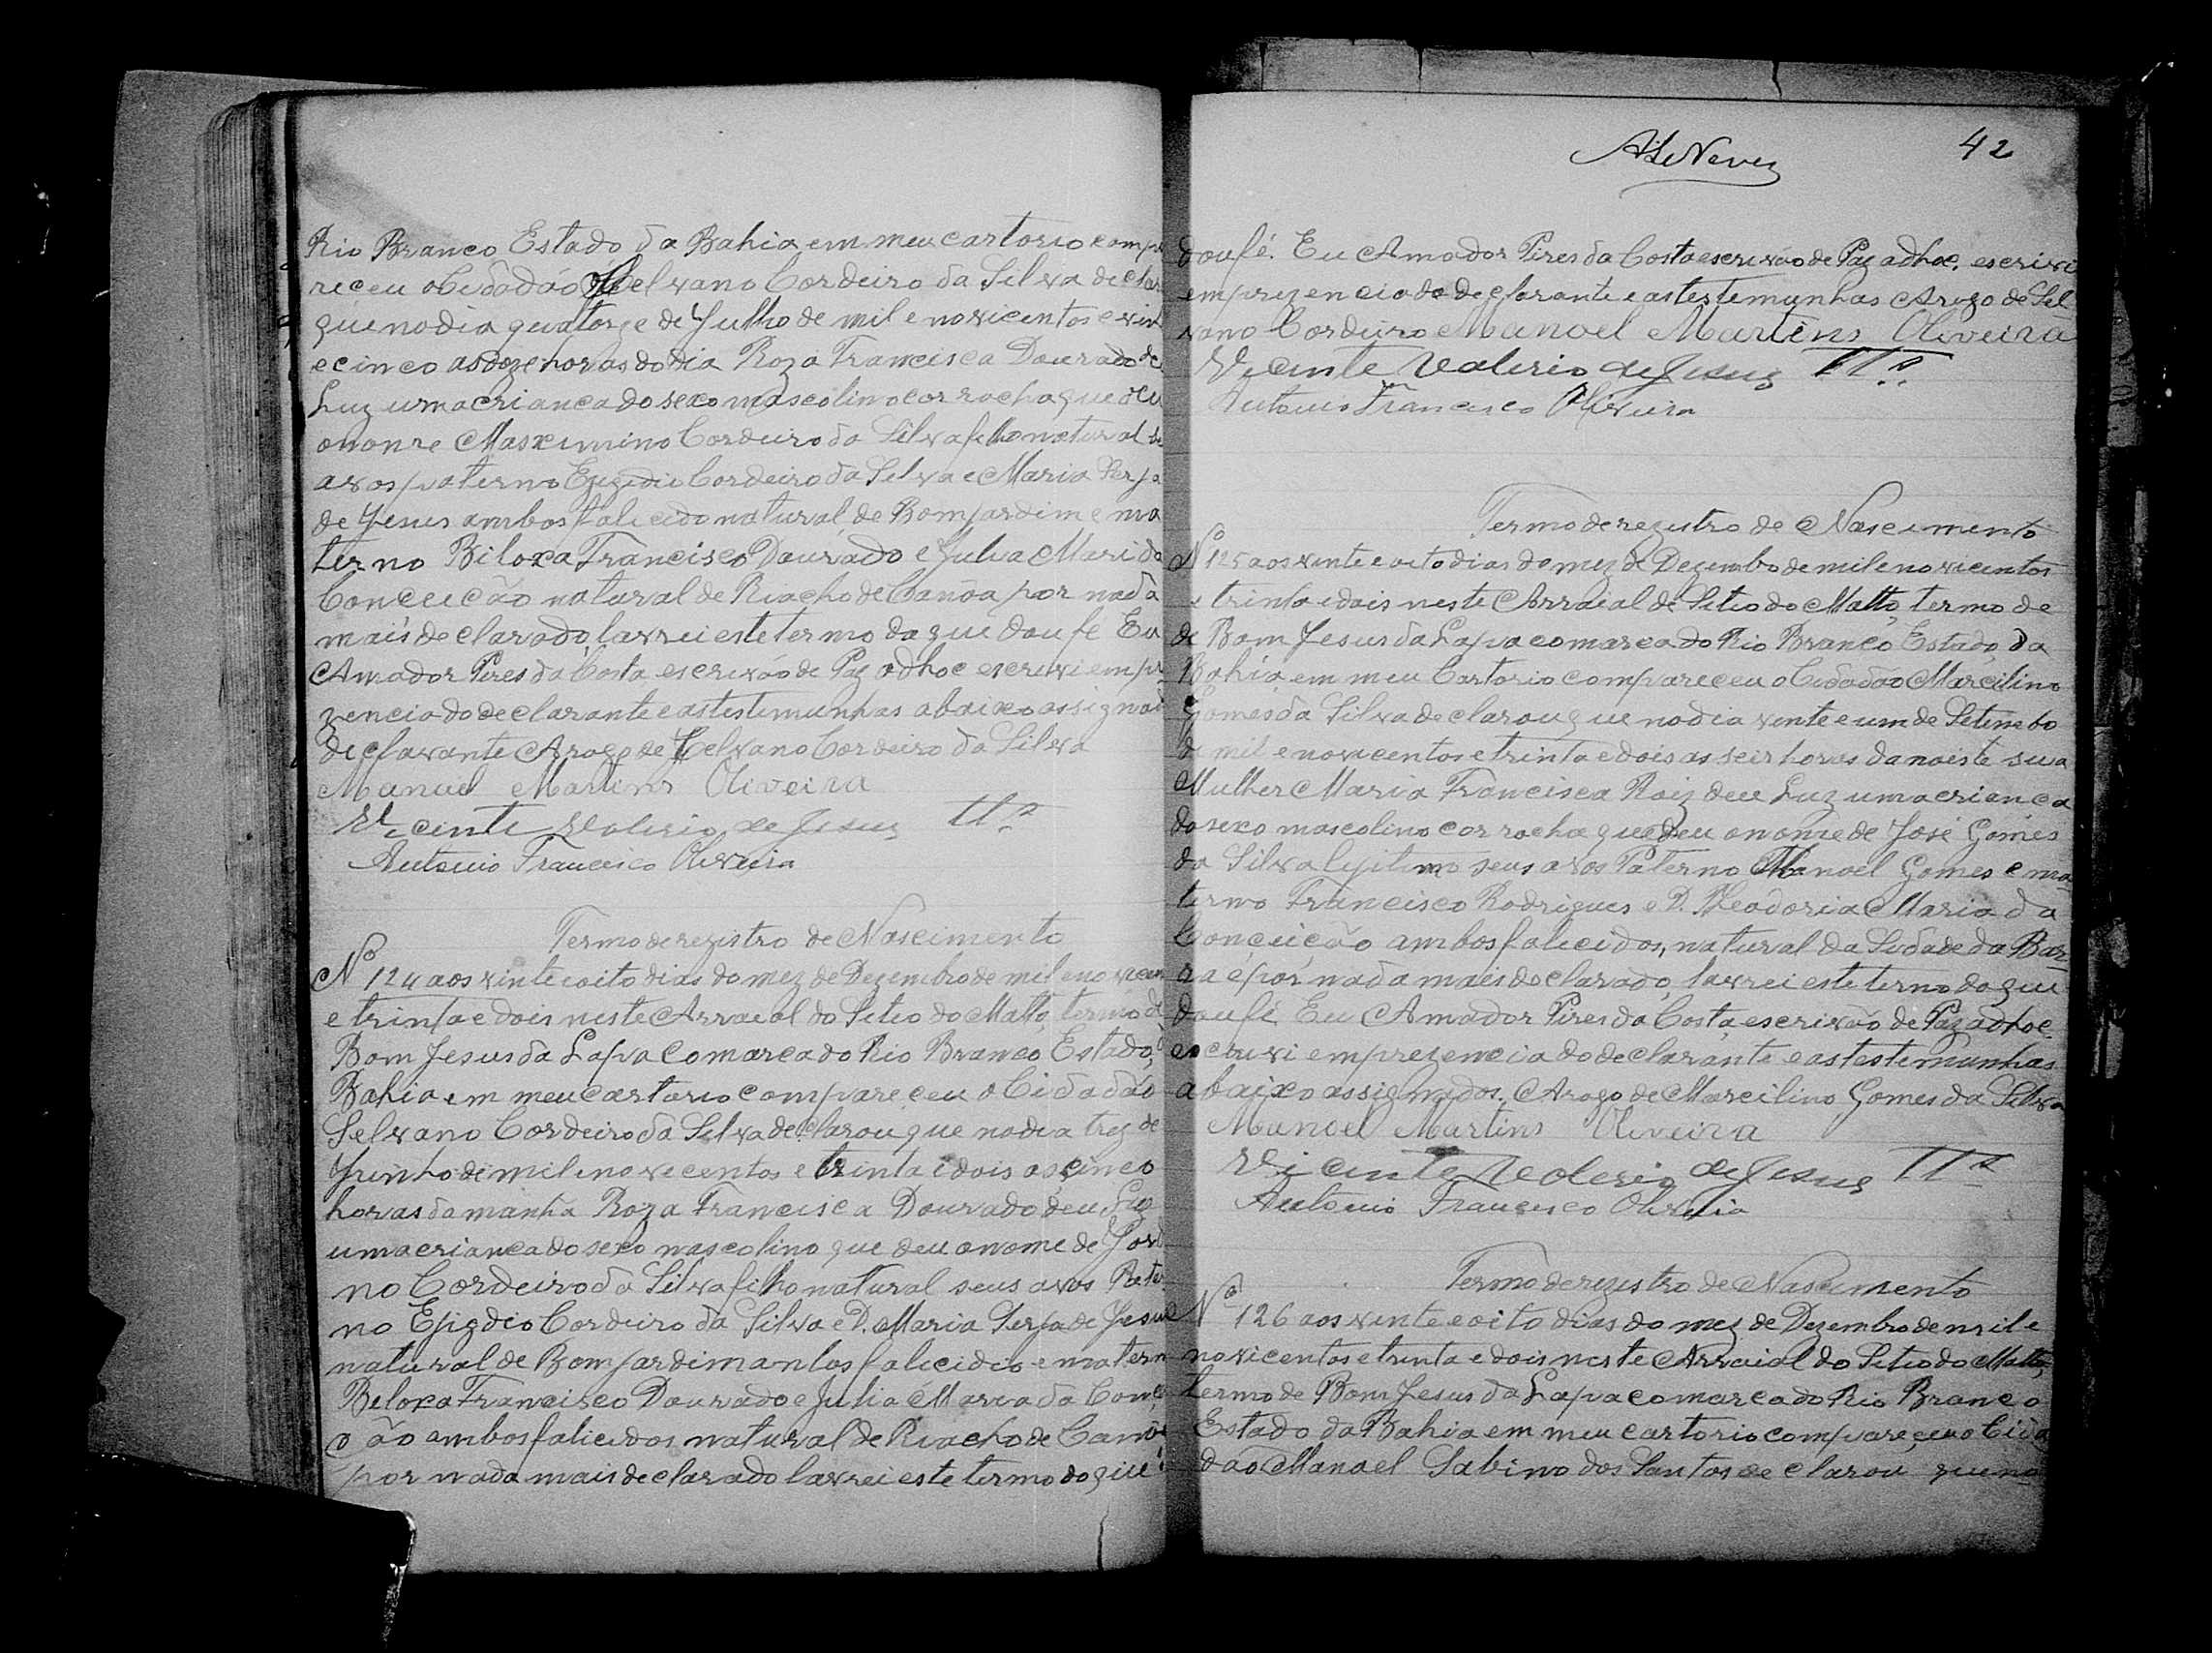 Rio Branco Estado da Bahia em meu cartorio compa
receu o Cidadão Selvano Cordeiro da Silva declar
que no dia quatorze de Julho de mil e novicentos e vin
e cinco as doze horas do dia Roza Francisca Dourado de
Luz uma crianca do sexo mascolino cor rocha que deu
o nonre Maximino Cordeiro da Silva filho natural
avos paterno Cordeiro da Silva e Maria Serja
de Jesus ambos falicido natural de Bomjardim e ma
terno Biloxa Francisco Dourado e Julia Mari da
Conceicão natural de Riacho de Canôa por nada
mais declarado, lavrei este termo do que dou fé Eu
Amador Pires da Costa escrivão de Paz adhoc escrivi em pr
zencia do declarante e as testemunhas abaixo assignad
declarante Arogo de Selvano Cordeiro da Silva
Manuel Martins Oliveira
Vicente Valerio de Jesus TTas
Antonio Francisco Oliveira
Termo de registro de Nascimento
Nº 124 aos vinte e oito dias do mez de Dezembro de mil e novicen
e trinta e dois neste Arraial do Sitio do Matto, termo de
Bom Jesus da Lapa Comarca do Rio Branco Estado, d
Bahia em meu cartorio compareceu o Cidadão
Selvano Cordeiro da Silva declarou que no dia trez de
Junho de mil e novecentos e trinta e dois as cinco
horas da manhã Roza Francisca Dourado deu Luz
uma crianca do sexo mascolino que deu o nome de Jovi
no Cordeiro da Silva filho natural seus avos Pater
no Ejigdio Cordeiro da Silva e D. Maria Serja de Jesus
natural de Bomjardim falicidio e matern
Beloxa Francisco Dourado e Julia Maria da Conce
ção ambos falicidos natural de Riacho de Canôa
por nada mais declarado lavrei este termo do que
ALNeves
42
dou fé. Eu Amador Pires da Costa escrivão de Paz adhoc. escrivi
em prezencia do declarante e as testemunhas Arogo de Sel
vano Cordeiro Manoel Martins Oliveira
Vicente Valerio de Jesus TTas
Antonio Francisco Oliveira
Termo de registro de Nascimento
Nº 125 aos vinte e oito dias do mez de Dezembo de mil e novicentos
e trinta e dois neste Arraial de Sitio do Matto, termo de
de Bom Jesus da Lapa comarca do Rio Branco, Estado, da
Bahia em meu Cartorio compareceu o Cidadão Marcilino
Gomes da Silva declarou que no dia vinte e um de Setembo
de mil e novicentos e trinta e dois as seis horas da noiste sua
Mulher Maria Francisca Roiz deu Luz uma crianca
do sexo mascolino cor rocha que deu o nome de José Gomes
da Silva legitimo seus avos Paterno Manoel Gomes e ma
terno Francisco Rodrigues e D. Theodoria Maria da
Conceição ambos falicidos, natural da Sidade da Bar-
ra e por nada mais declarado, lavrei este termo do que
dou fé Eu Amador Pires da Costa, escrivão de Paz adhoc
escruvi em prezencia do declarante e as testemunhas
abaixo assignados. Arogo de Marcilino Gomes da Silva
Manoel Martins Oliveira
Vicente Valerio de Jesus TTas
Antonio Francisco Oliveira
Termo de rezistro de Nascimento
Nº 126 aos vinte e oito dias do mez de Dezembro de mil e
novicentos e trinta e dois neste Arraial do Sitio do Matto,
termo de Bom Jesus da Lapa comarca do Rio Branco
Estado da Bahia em meu cartorio compareceu o Cida
dão Manoel Sabino dos Santos declarou que no